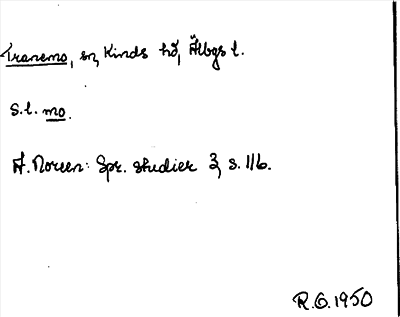 Tranemo, sn, Kinds hd, Älbgs l.
S.l. mo.
A. Noreen: Spr. studier 3, s. 116.
R.G. 1950